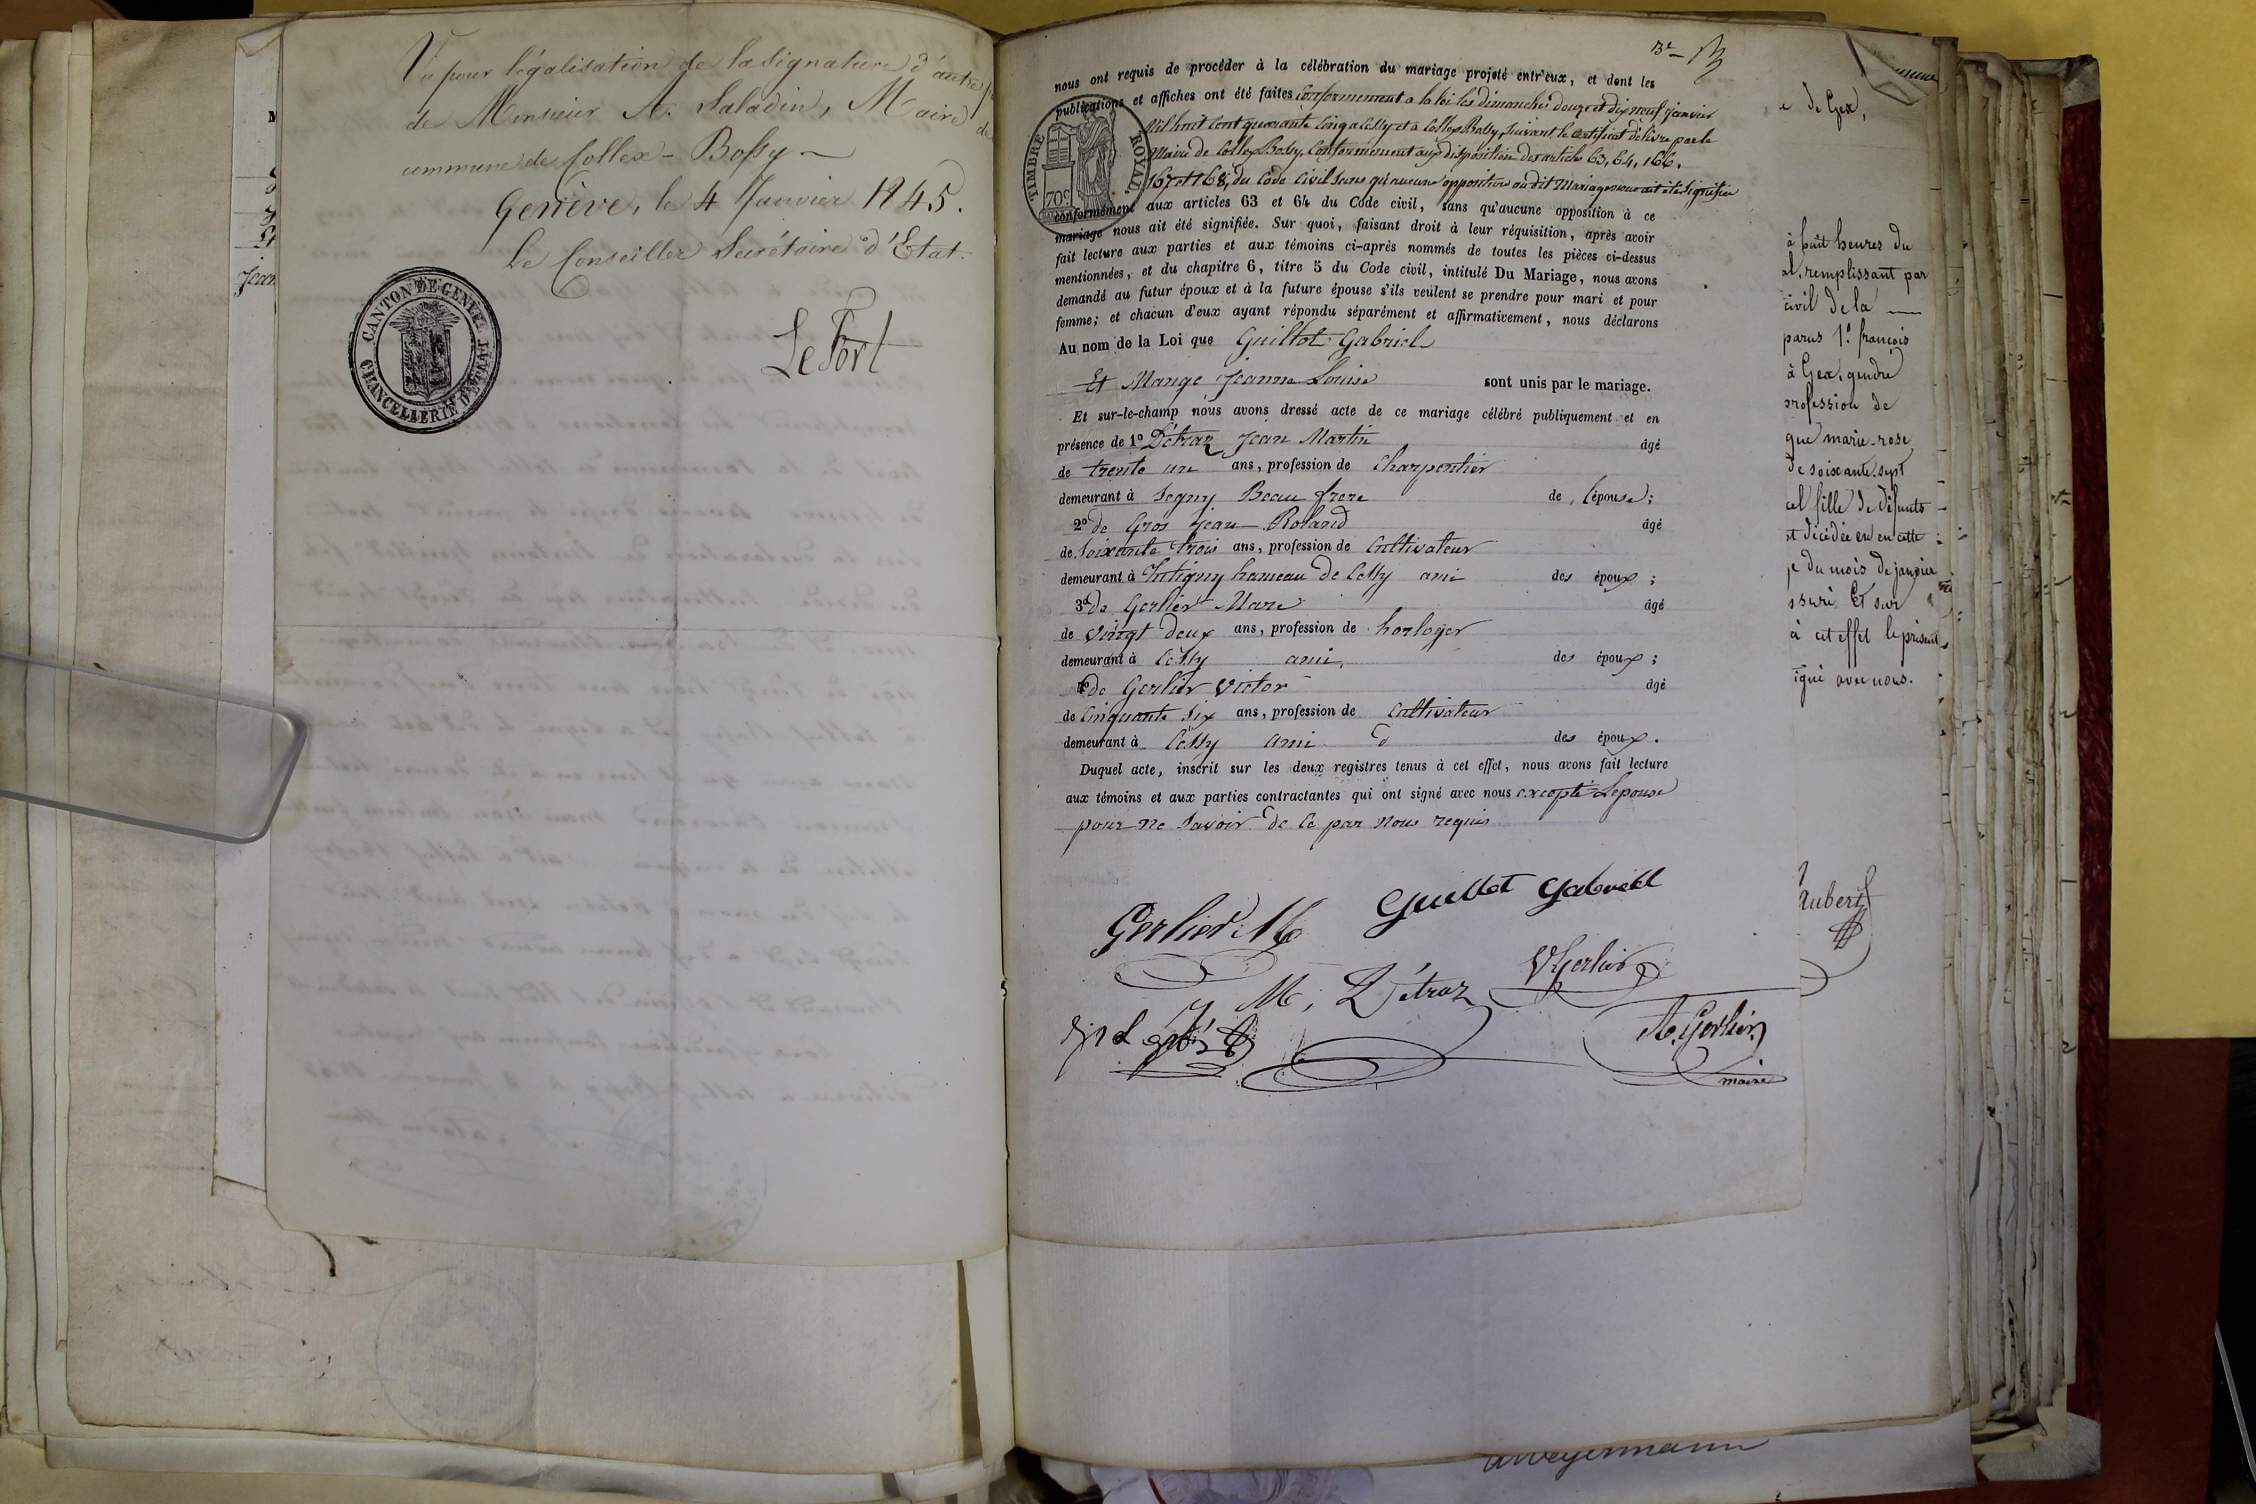 Vu pour légalisation de la signature d'autre
de Monsieur A. Saladin, Maire de
commune de Collex-Bossy
Genève, le 4 Janvier 1845.
Le Conseiller Secrétaire d'Etat.
CANTON DE GENEVE
CHANCELLERIE D'ETAT
LeFort
nous ont requis de procéder à la célébration du mariage projeté entr'eux, et dont les
publications et affiches ont été faites conformement a la loi les dimanches douze et dix neuf janvier
Mil huit cent quarante cinq a Cessy et a Collex Bossy, suivant le certificat délivré par le
Maire de Collex Bossy, conformement aux disposition des article 63, 64, 166,
167 et 168, du Code Civil sans qu'aucune opposition au dit Mariage nous ait été signifiée
TIMBRE ROYAL
70c
conformément aux articles 63 et 64 du Code civil, sans qu'aucune opposition à ce
mariage nous ait été signifiée. Sur quoi, faisant droit à leur réquisition, après avoir
fait lecture aux parties et aux témoins ci-après nommés de toutes les pièces ci-dessus
mentionnées, et du chapitre 6, titre 5 du Code civil, intitulé Du Mariage, nous avons
demandé au futur époux et à la future épouse s'ils veulent se prendre pour mari et pour
femme; et chacun d'eux ayant répondu séparément et affirmativement, nous déclarons
Au nom de la Loi que Guillot Gabriel
Et Mange Jeanne Louise sont unis par le mariage.
Et sur-le-champ nous avons dressé acte de ce mariage célébré publiquement et en
présence de 1o Détraz Jean Martin âgé
de trente un ans, profession de charpentier
demeurant à Segny Beau frere de l'épouse;
2o de Gros Jean Roland âgé
de soixante trois ans, profession de cultivateur
demeurant à hameau de Cessy ami des époux;
3o de Gerlier Marc âgé
de vingt deux ans, profession de horloger
demeurant à Cessy ami, des époux;
4o de Gerlier Victor âgé
de cinquante six ans, profession de cultivateur
demeurant à Cessy ami des époux.
Duquel acte, inscrit sur les deux registres tenus à cet effet, nous avons fait lecture
aux témoins et aux parties contractantes qui ont signé avec nous excepté Lepouse
pour ne savoir de ce par nous requis
Guillot Gabriel
Gerlier M
V Gerlier
J M, Détraz
A. Gerlier
maire
de Gex,
à huit heures du
remplissant par
civil de la
parus 1o françois
à Gex, gendre
profession de
que marie-rose
de soixante sept
fille de défunts
et décédée en cette
du mois de janvier
Et sur
à cet effet le présent
avec nous.
aubert